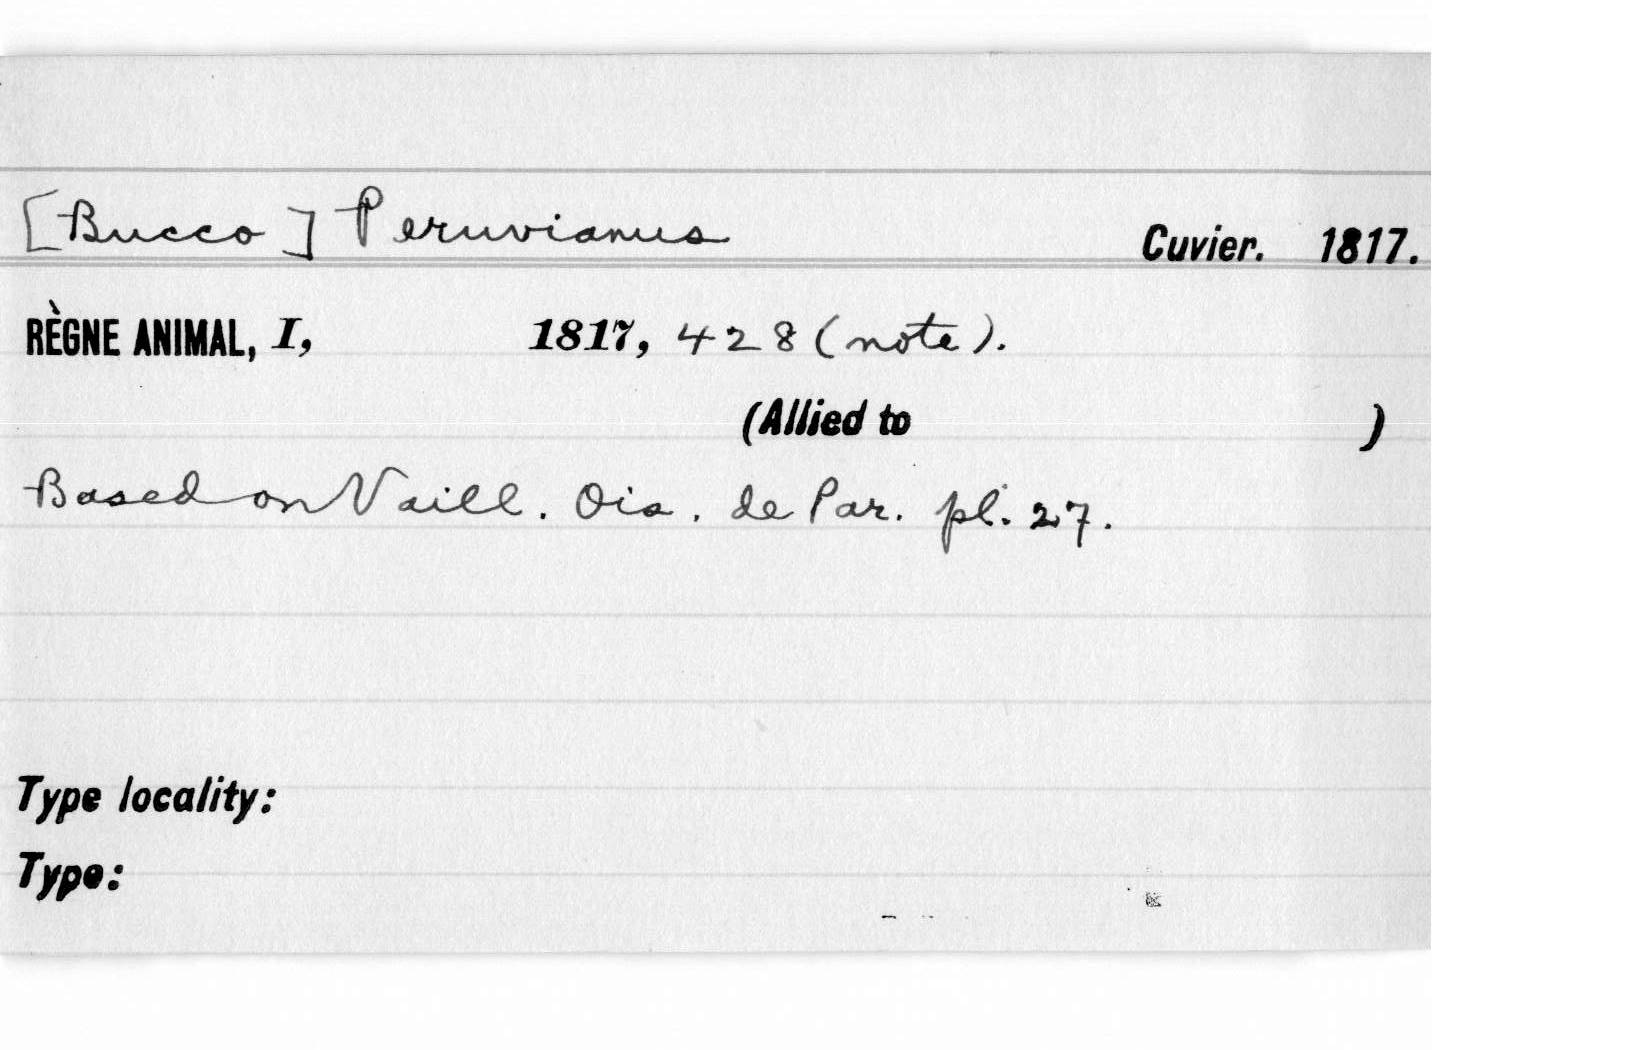 [Bucco] Peruvianus Cuvier. 1817.
RÈGNE ANIMAL, I, 1817, 428 (note).
(Allied to )
Based on Vaill. Ois. de Par. pl. 27.
Type locality:
Type: